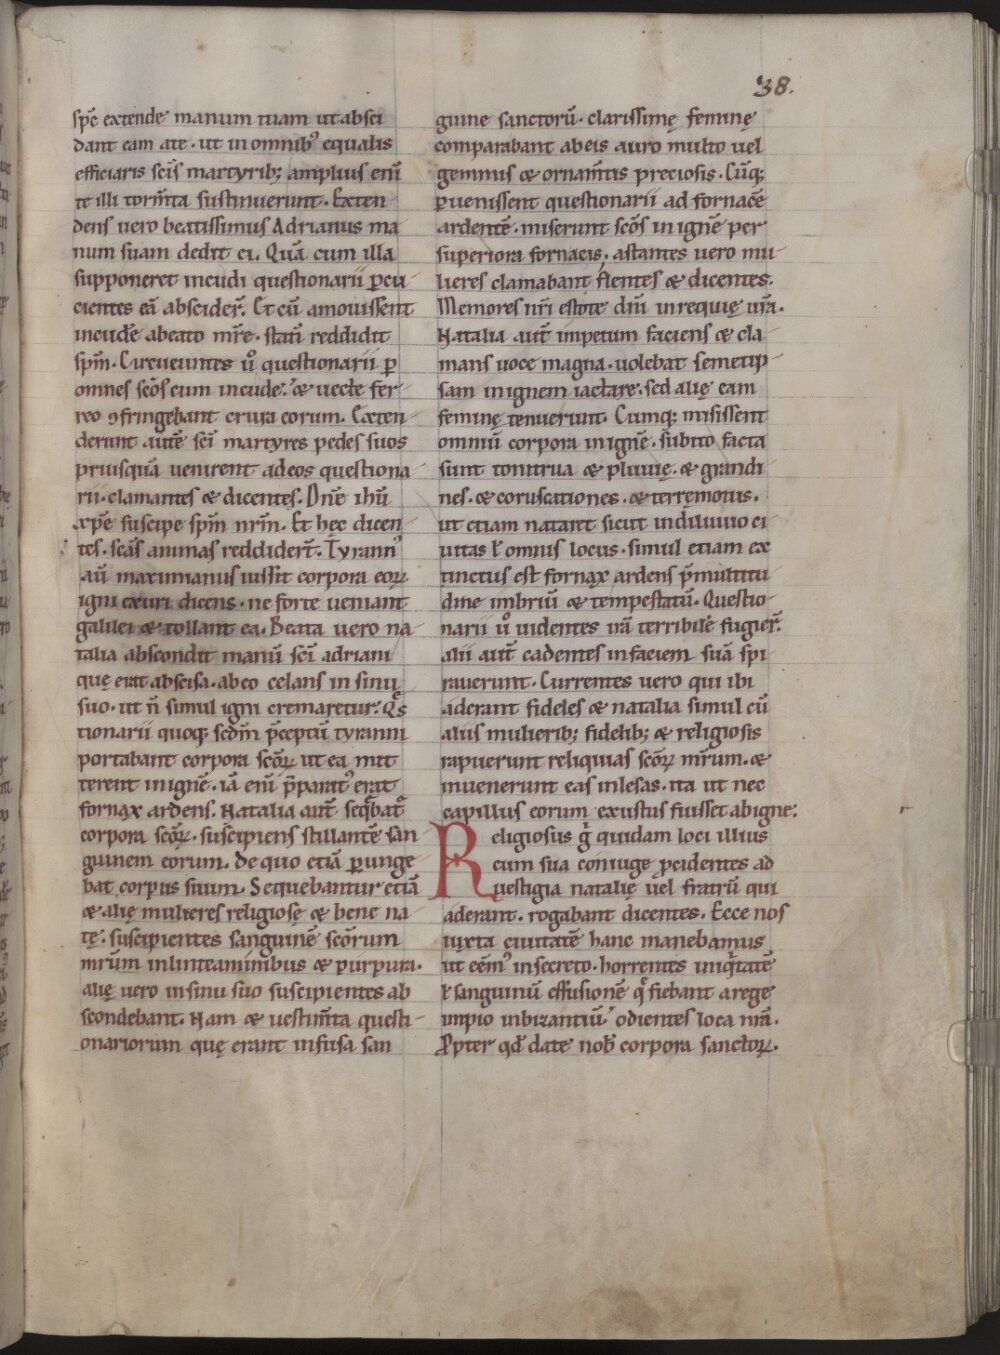 38.
spē extende manum tuam ut absci
dant eam a te. ut in omnib᷒ equalis
efficiaris scīs martyrib; amplius enī
te illi torm̄ta sustinuerunt. Exten
dens uero beatissimus Adrianus ma
num suam dedit ei. Quā cum illa
supponeret incudi questionarii ꝑcu
cientes eā absciderꝰ. Et cū amouissent
incudē a beato mr̄e. statī reddidit
spm̄. Circueuntes u᷒o questionarii ꝑ
omnes scōs cum incude. & uecte fer
reo ꝯfringebant crura eorum. Exten
derunt autē scī martyres pedes suos
priusquā uenirent ad eos questiona
rii. clamantes & dicentes. Dn̄e ihū
xp̄e suscipe spm̄ nrm̄. Et hęc dicen
tes. scās animas reddidert̄. Tyrann᷒
aū maximianus iussit corpora eoꝝ
igni exuri dicens. ne forte ueniant
galilei & tollant ea. Beata uero na
talia abscondit manū scī adriani
quę erat abscisa. ab eo celans in sinu
suo. ut n̄ simul igni cremaretur. Qs̄
tionarii quoq; scdm̄ p̄ceptū tyranni
portabant corpora scōꝝ ut ea mit
terent in ignē. iā enī p̄parat᷒ erat
fornax ardens. Natalia aut̄ seq̄bat᷒
corpora scōꝝ. suscipiens stillantē san
guinem eorum. de quo etiā ꝑunge
bat corpus suum. Sequebantur etiā
& alię mulieres religiosę & bene na
tę. suscipientes sanguinē scōrum
mr̄um in linteaminibus & purpura.
alię uero in sinu suo suscipientes ab
scondebant. Nam & uestim̄ta questi
onariorum quę erant infusa san
guine sanctorū. clarissimę feminę
comparabant ab eis auro multo uel
gemmis & ornam̄tis preciosis. Cūq;
ꝑuenissent questionarii ad fornacē
ardentē. miserunt scōs in ignē per
superiora fornacis. astantes uero mu
lieres clamabant flentes & dicentes.
Memores nr̄i estote dn̄i in requię ur̄a.
Natalia aut̄ impetum faciens & cla
mans uoce magna. uolebat semetip
sam in ignem iactare. sed alię eam
feminę tenuerunt. Cumq; misissent
omniū corpora in ignē. subito facta
sunt tonitrua & pluuię. & grandi
nes. & coruscationes. & terręmotus.
ut etiam nataret sicut in diluuio ci
uitas ł omnis locus. simul etiam ex
tinctus est fornax ardens p̄ multitu
dine imbriū & tempestatū. Questio
narii u᷒o uidentes irā terribilē fugier̄.
alii aut̄ cadentes in faciem suā spi
rauerunt. Currentes uero qui ibi
aderant fideles & natalia simul cū
aliis mulierib; fidelib; & religiosis
rapuerunt reliquias scōꝝ mr̄um. &
inuenerunt eas inlesas. ita ut nec
capillus eorum exustus fuisset ab igne.
Religiosus g̊ quidam loci illius
cum sua coniuge ꝓcidentes ad
uestigia natalię uel fratrū qui
aderant. rogabant dicentes. Ecce nos
iuxta ciuitatē hanc manebamus
ut eēm᷒ in secreto. horrentes iniq̇tatē
ł sanguinū effusionē q̄ fiebant a rege
impio in bizantiū. odientes loca nr̄a.
Ꝓpter qd̄ date nob̄ corpora sanctoꝝ.